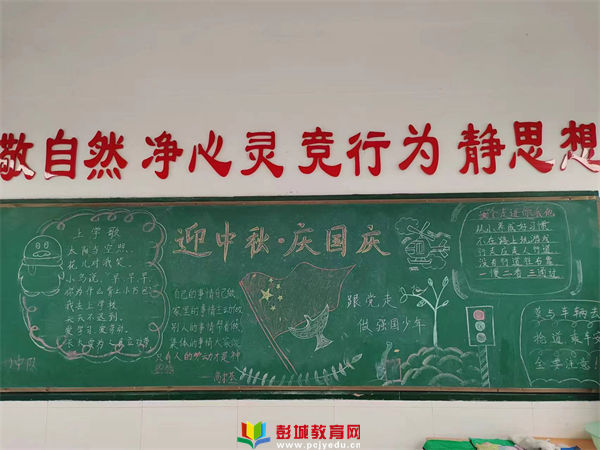 敬自然 净心灵 竞行为 静思想
迎中秋·庆国庆
上学歌
太阳当空照，
花儿对我笑，
小鸟说，早早早，
你为什么背上小书包
我去上学校
天天不迟到，
爱学习 爱劳动，
长大要为人民立功劳
中队
自己的事情自己做
家里的事情主动做
别人的事情帮着做
集体的事情大家做
只有人的劳动才是神
圣的
——高尔基
跟党走
做强国少年
安全走进你我他
从小养成好习惯
不在路上玩游戏
行走应走人行道
没有行道往右靠
一慢二看三通过
莫与车辆去
抢道
要注意
彭城教育网
www.pcjyedu.cn